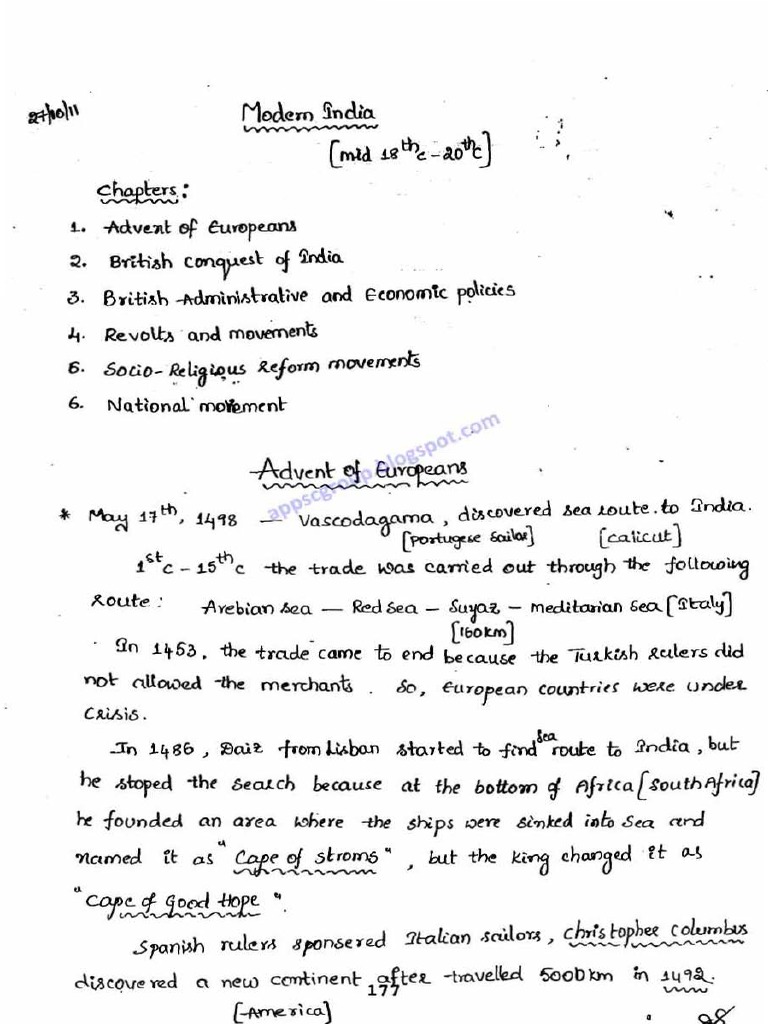 27/10/11
Modern India
[mid 18th c - 20th c]
Chapters:
1. Advent of Europeans
2. British conquest of India
3. British Administrative and Economic policies
4. Revolts and movements
5. Socio-Religious Reform movements
6. National movement
appscgroup.blogspot.com
Advent of Europeans
* May 17th, 1498 – Vascodagama, discovered sea route to India.
[portugese sailor] [calicut]
1st c - 15th c the trade was carried out through the following
Route: Arebian sea – Red sea – Suyaz – meditarian sea [Italy]
[160km]
In 1453, the trade came to end because the Turkish rulers did
not allowed the merchants. So, European countries were under
crisis.
In 1486, Daiz from Lisban started to find sea route to India, but
he stoped the search because at the bottom of Africa [South Africa]
he founded an area where the ships were sinked into sea and
named it as "Cape of stroms", but the king changed it as
"Cape of Good Hope".
Spanish rulers sponsered Italian sailors, christopher columbus
discovered a new continent after travelled 5000km in 1492.
177
[America]